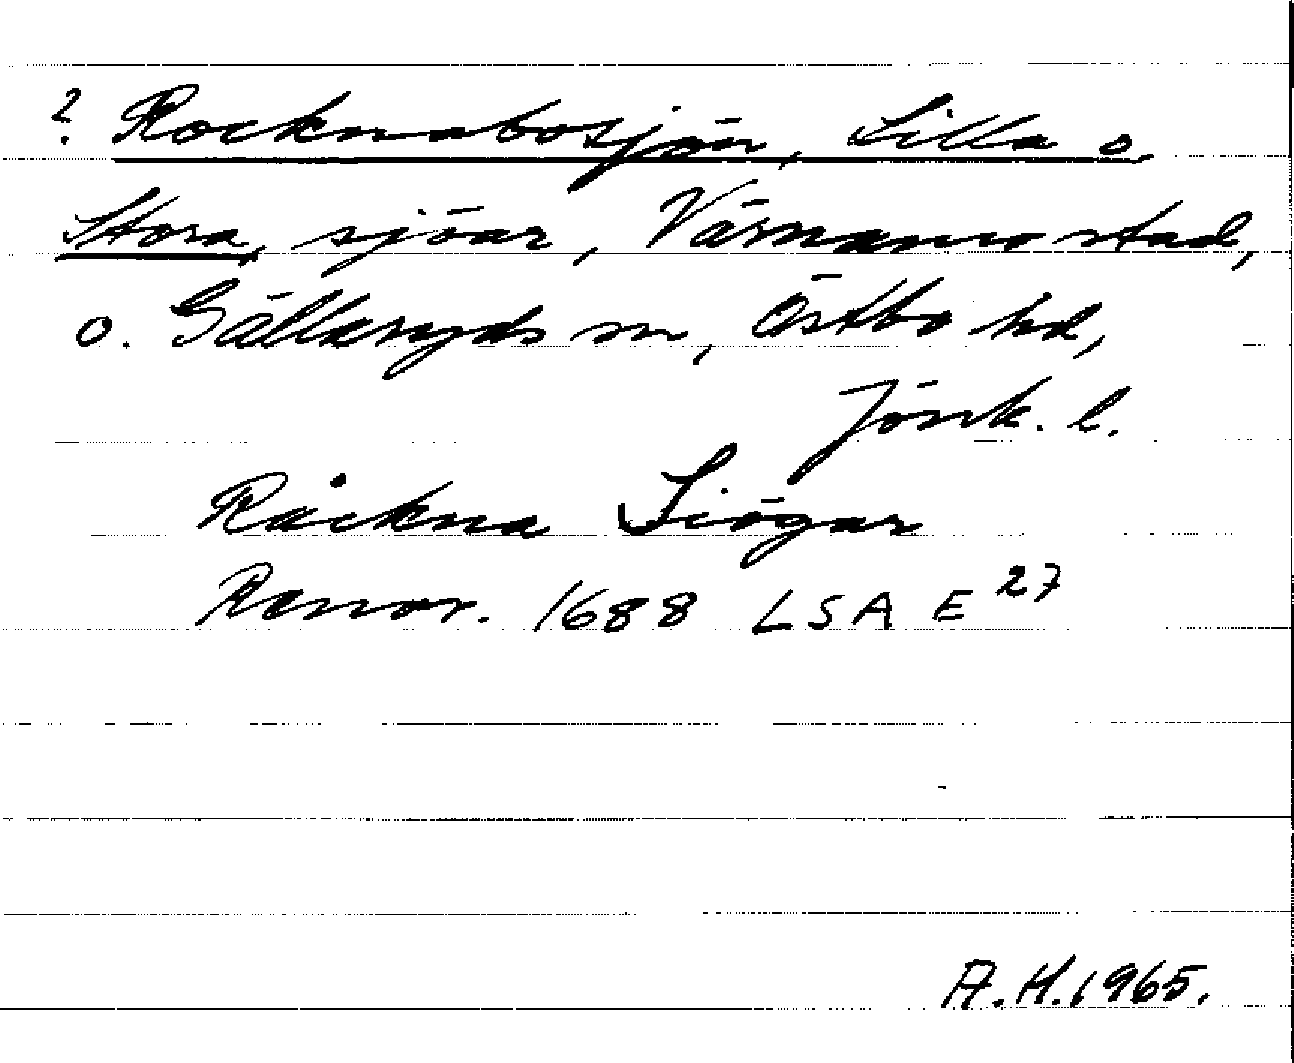 ? Rocknabosjön, Lilla o.
Stora, sjöar, Värnamo stad,
o. Gällaryds sn, Östbo hd,
Jönk. l.
Råckna Siögar
Rannr. 1688 LSA E 27
A.H. 1965.